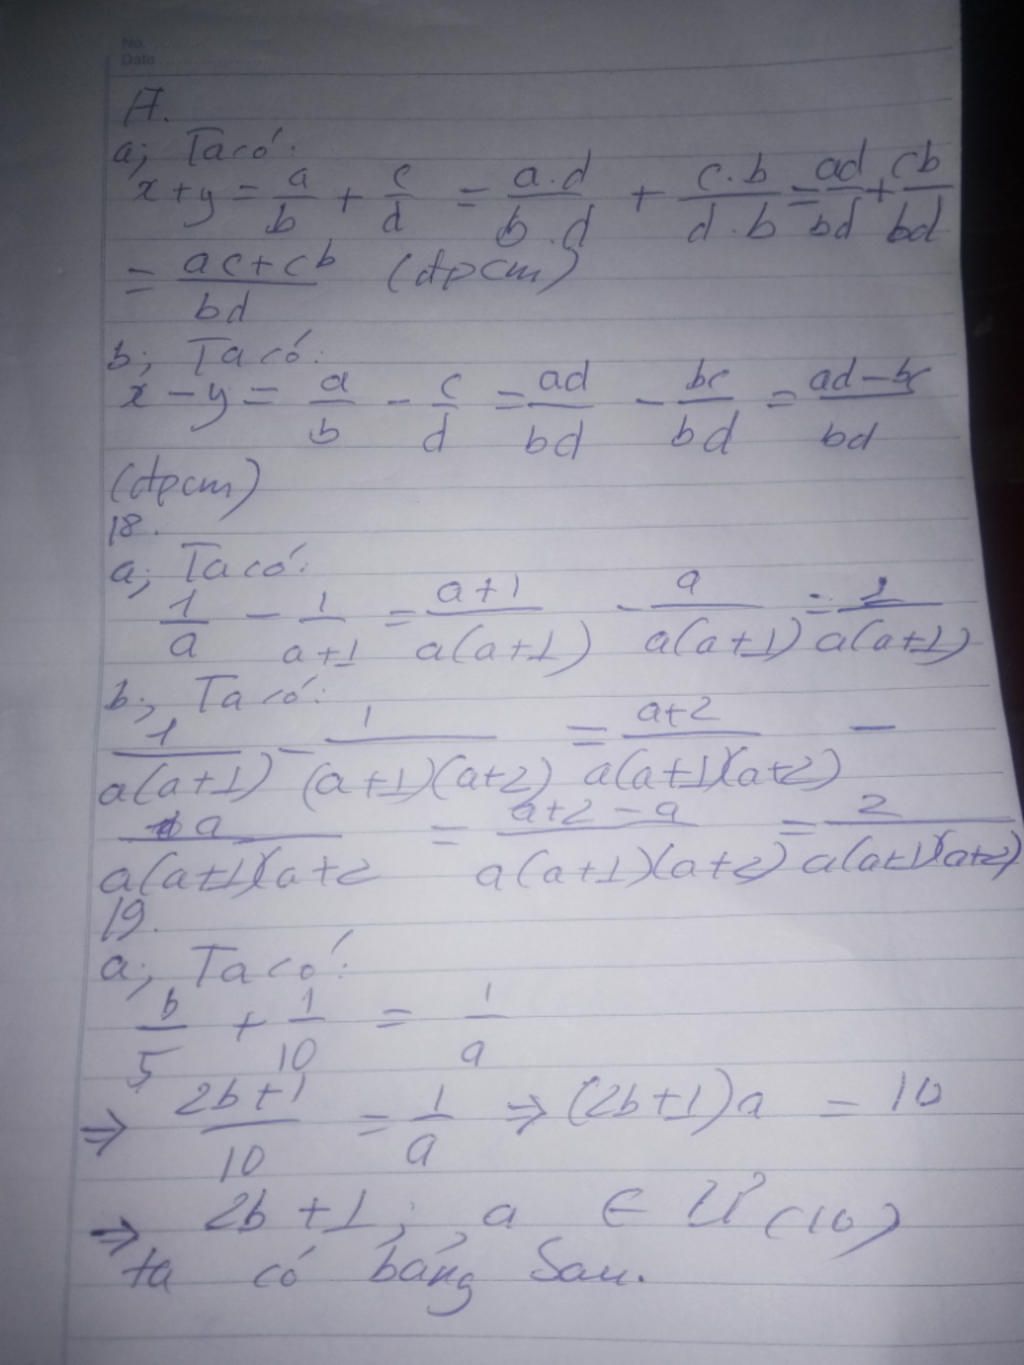 No.
Date
17.
a; Ta có:
x + y = a/b + c/d = a.d/b.d + c.b/d.b = ad/bd + cb/bd
= ac+cb/bd (đpcm)
b; Ta có:
x - y = a/b - c/d = ad/bd - bc/bd = ad-bc/bd
(đpcm)
18.
a; Ta có:
1/a - 1/a+1 = a+1/a(a+1) - a/a(a+1) = 1/a(a+1)
b; Ta có:
1/a(a+1) - 1/(a+1)(a+2) = a+2/a(a+1)(a+2) -
a/a(a+1)(a+2 = a+2-a/a(a+1)(a+2) = 2/a(a+1)(a+2)
19.
a; Ta có:
b/5 + 1/10 = 1/a
⇒ 2b+1/10 = 1/a ⇒ (2b+1)a = 10
⇒ 2b+1; a ∈ Ư(10)
ta có bảng sau.